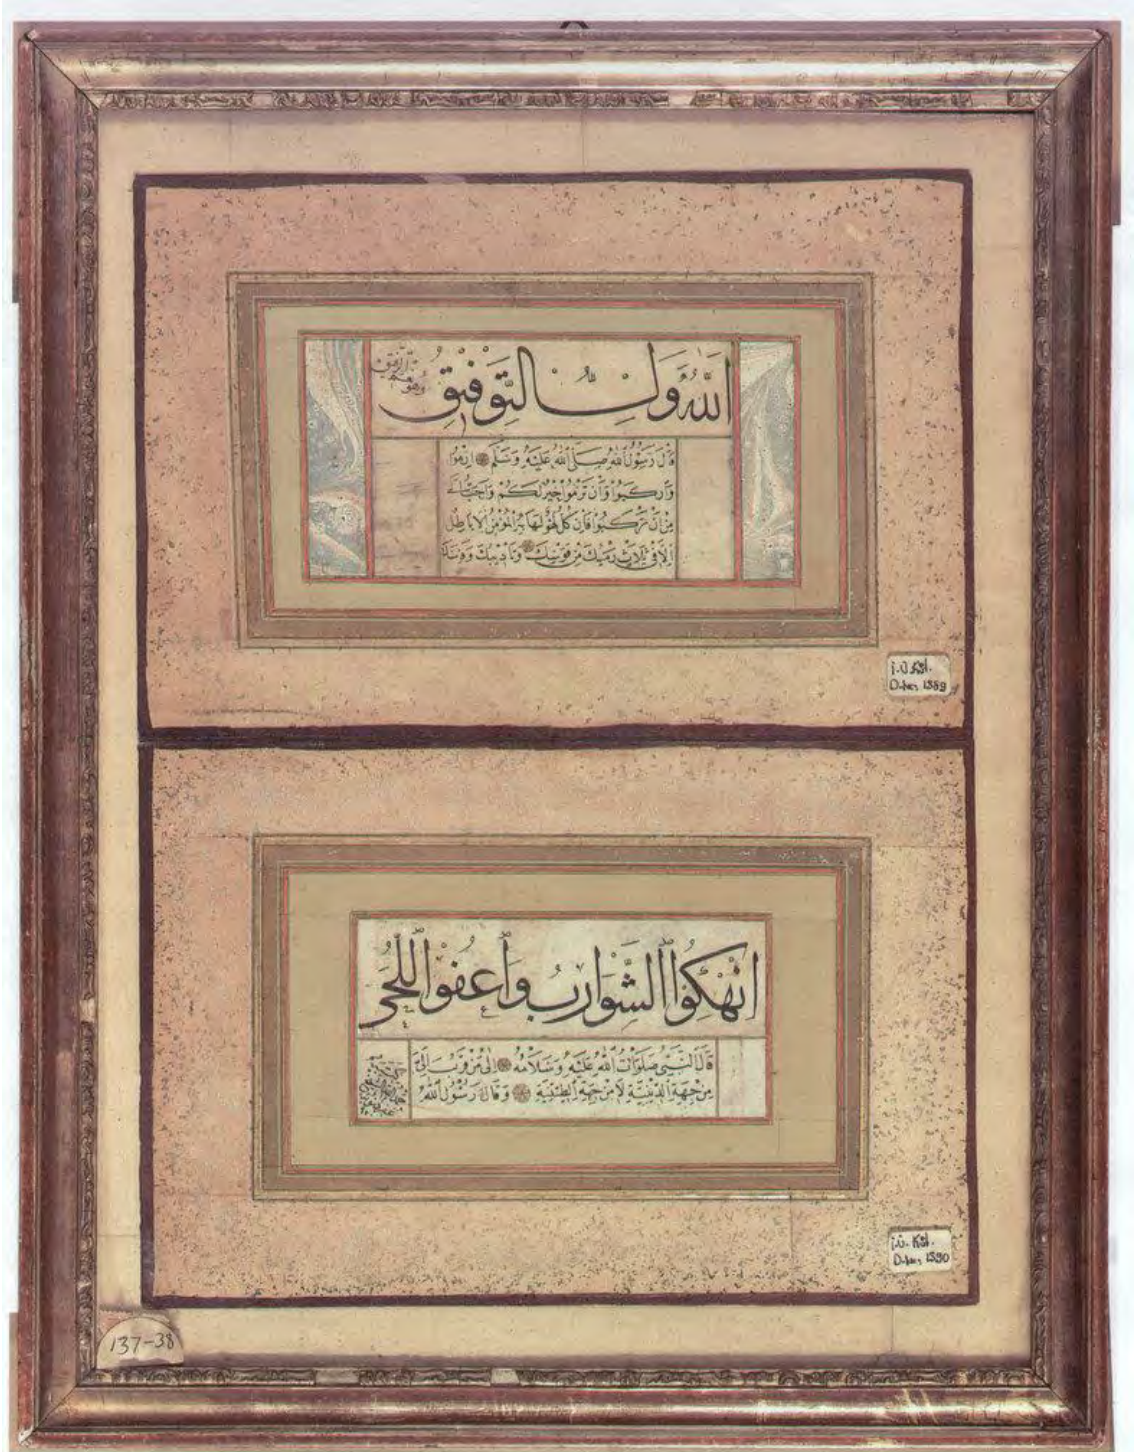 اَللّٰهُ وَلِيُّ التَّوْفِيقِ
قَالَ رَسُولُ اللّٰهِ صَلَّى اللّٰهُ عَلَيْهِ وَسَلَّمَ اِرْمُوا
وَارْكَبُوا وَاَنْ تَرْمُوا خَيْرٌ لَكُمْ وَاَحَبُّ اِلَيَّ
مِنْ اَنْ تَرْكَبُوا فَاِنَّ كُلَّ لَهْوٍ لَهَا بِهِ الْمُؤْمِنُ اِلَّا بَاطِلٌ
اِلَّا فِي ثَلَاثٍ رَمْيِكَ مِنْ قَوْسِكَ وَتَأْدِيبِكَ
İ.Ü.Ktl.
D.No, 1389
اِنْهَكُوا الشَّوَارِبَ وَاعْفُوا اللُّحَى
قَالَ النَّبِيُّ صَلَوَاتُ اللّٰهِ عَلَيْهِ وَسَلَامُهُ
مِنْ جِهَةِ الدِّينِيَّةِ لَا مِنْ جِهَةِ الطِّينِيَّةِ وَقَالَ رَسُولُ اللّٰهِ
İ.Ü. Ktl.
D.No, 1390
137-38